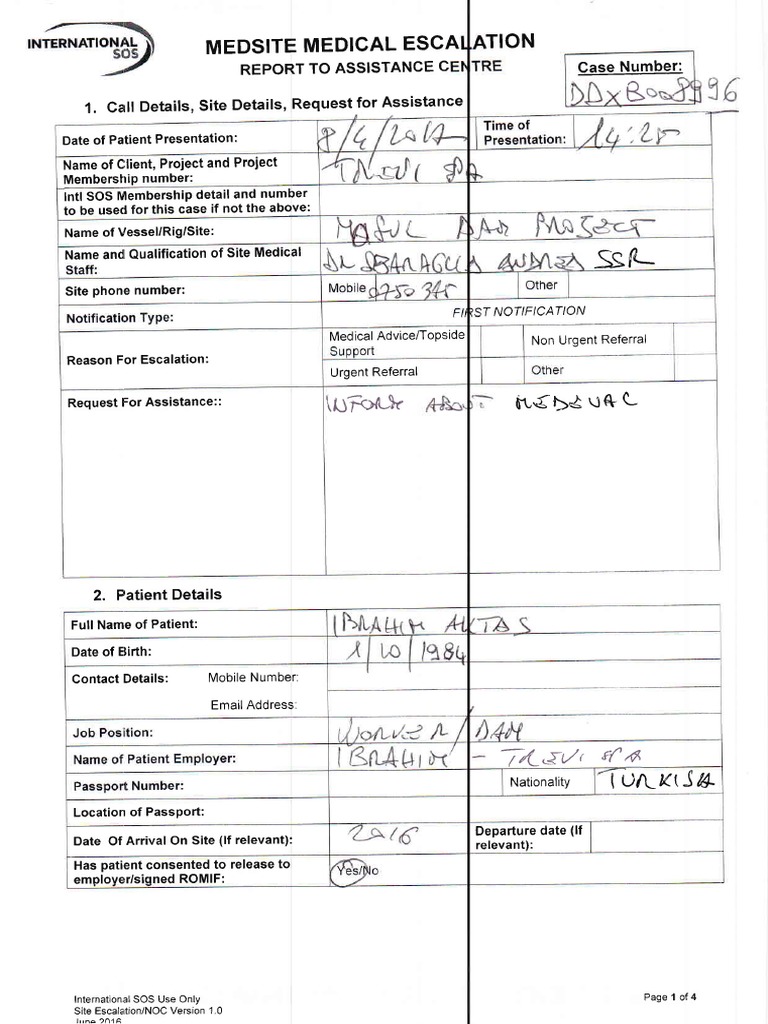 INTERNATIONAL
SOS
MEDSITE MEDICAL ESCALATION
REPORT TO ASSISTANCE CENTRE
Case Number:
DDxB008996
1. Call Details, Site Details, Request for Assistance
Date of Patient Presentation: 8/4/2017 Time of Presentation: 14:25
Name of Client, Project and Project
Membership number: TREVI SPA
Intl SOS Membership detail and number
to be used for this case if not the above:
Name of Vessel/Rig/Site: MOSUL DAM PROJECT
Name and Qualification of Site Medical
Staff: DR SBARAGLIA ANDREA SSR
Site phone number: Mobile 0750 345 Other
Notification Type: FIRST NOTIFICATION
Reason For Escalation:
Medical Advice/Topside
Support
Non Urgent Referral
Urgent Referral Other
Request For Assistance:: INFORM ABOUT MEDEVAC
2. Patient Details
Full Name of Patient: IBRAHIM AKTAS
Date of Birth: 1/10/1984
Contact Details: Mobile Number:
Email Address:
Job Position: WORKER/DAM
Name of Patient Employer: IBRAHIM - TREVI SPA
Passport Number: Nationality TURKISH
Location of Passport:
Date Of Arrival On Site (If relevant): 2016 Departure date (If
relevant):
Has patient consented to release to
employer/signed ROMIF: Yes/No
International SOS Use Only
Site Escalation/NOC Version 1.0
June 2016
Page 1 of 4